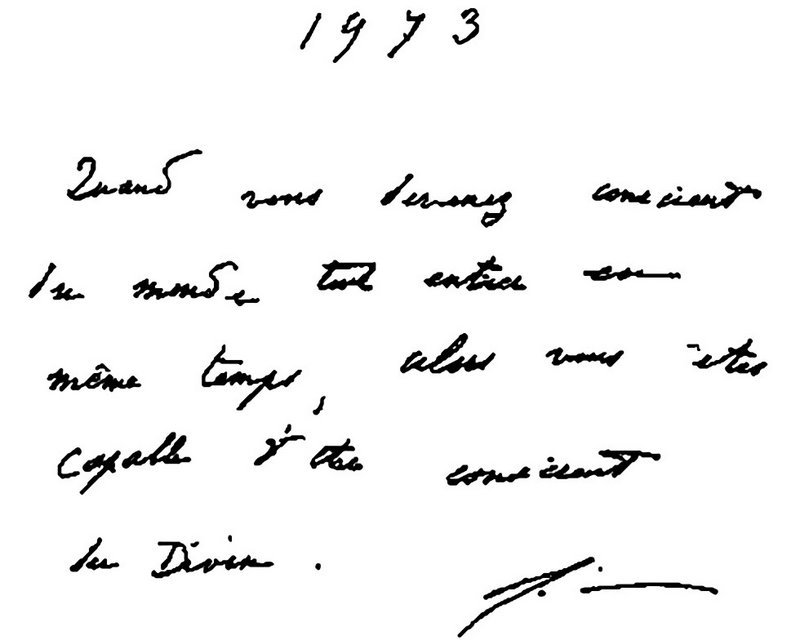 1973
Quand vous devenez conscient
du monde tout entier en
même temps, alors vous êtes
capable d'être conscient
du Divin.